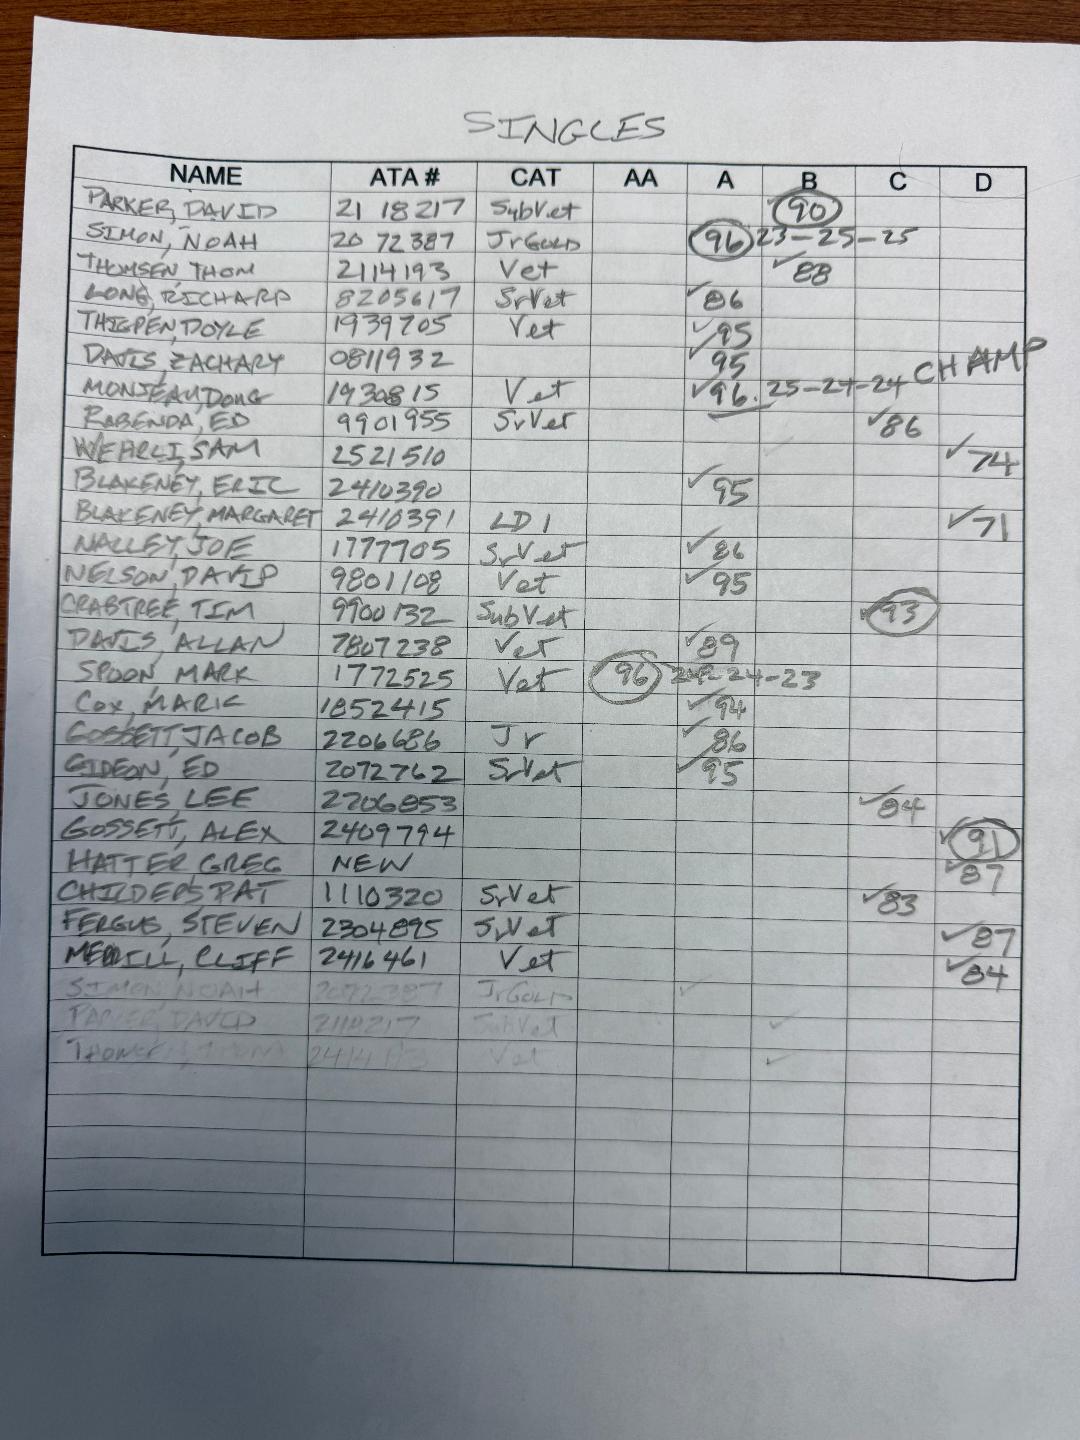 SINGLES
NAME ATA # CAT AA A B C D
PARKER, DAVID 21 18217 SubVet 90
SIMON, NOAH 20 72387 JrGOLD 96 23-25-25
THOMSEN, THOM 2114193 Vet ✓88
LONG, RICHARD 8205617 SrVet ✓86
THIGPEN, DOYLE 1939705 Vet ✓95
DAVIS, ZACHARY 0811932 ✓95
MONJEAU, DOUG 1930815 Vet ✓96. 25-24-24 CHAMP
RABENDA, ED 9901955 SrVet ✓86
WEHRLI, SAM 2521510 ✓74
BLAKENEY, ERIC 2410390 ✓95
BLAKENEY, MARGARET 2410391 LD1 ✓71
NALLEY, JOE 1777705 SrVet ✓86
NELSON, DAVID 9801108 Vet ✓95
CRABTREE, TIM 9900132 SubVet ✓93
DAVIS, ALLAN 7807238 Vet ✓89
SPOON, MARK 1772525 Vet 96 24-24-23
COX, MARK 1852415 ✓94
GOSSETT, JACOB 2206686 Jr ✓86
GIDEON, ED 2072762 SrVet ✓95
JONES, LEE 2206853 ✓84
GOSSETT, ALEX 2409794 ✓91
HATTER, GREG NEW ✓87
CHILDERS, PAT 1110320 SrVet ✓83
FERGUS, STEVEN 2304895 SrVet ✓87
MERRILL, CLIFF 2416461 Vet ✓84
SIMON, NOAH 2072387 JrGOLD ✓
PARKER, DAVID SubVet ✓
Vet ✓